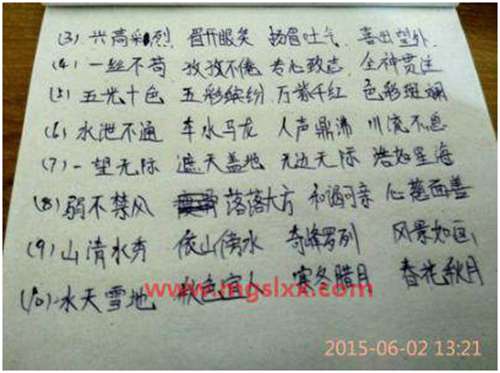 (3) 兴高彩烈 眉开眼笑 扬眉吐气 喜出望外
(4) 一丝不苟 孜孜不倦 专心致志 全神贯注
(5) 五光十色 五彩缤纷 万紫千红 色彩斑斓
(6) 水泄不通 车水马龙 人声鼎沸 川流不息
(7) 一望无际 遮天盖地 无边无际 浩如星海
(8) 弱不禁风 落落大方 和谒可亲 心慈面善
(9) 山清水秀 依山傍水 奇峰罗列 风景如画
(10) 冰天雪地 秋高 寒冬腊月 春花秋月
www.mgslxx.com
2015-06-02 13:21